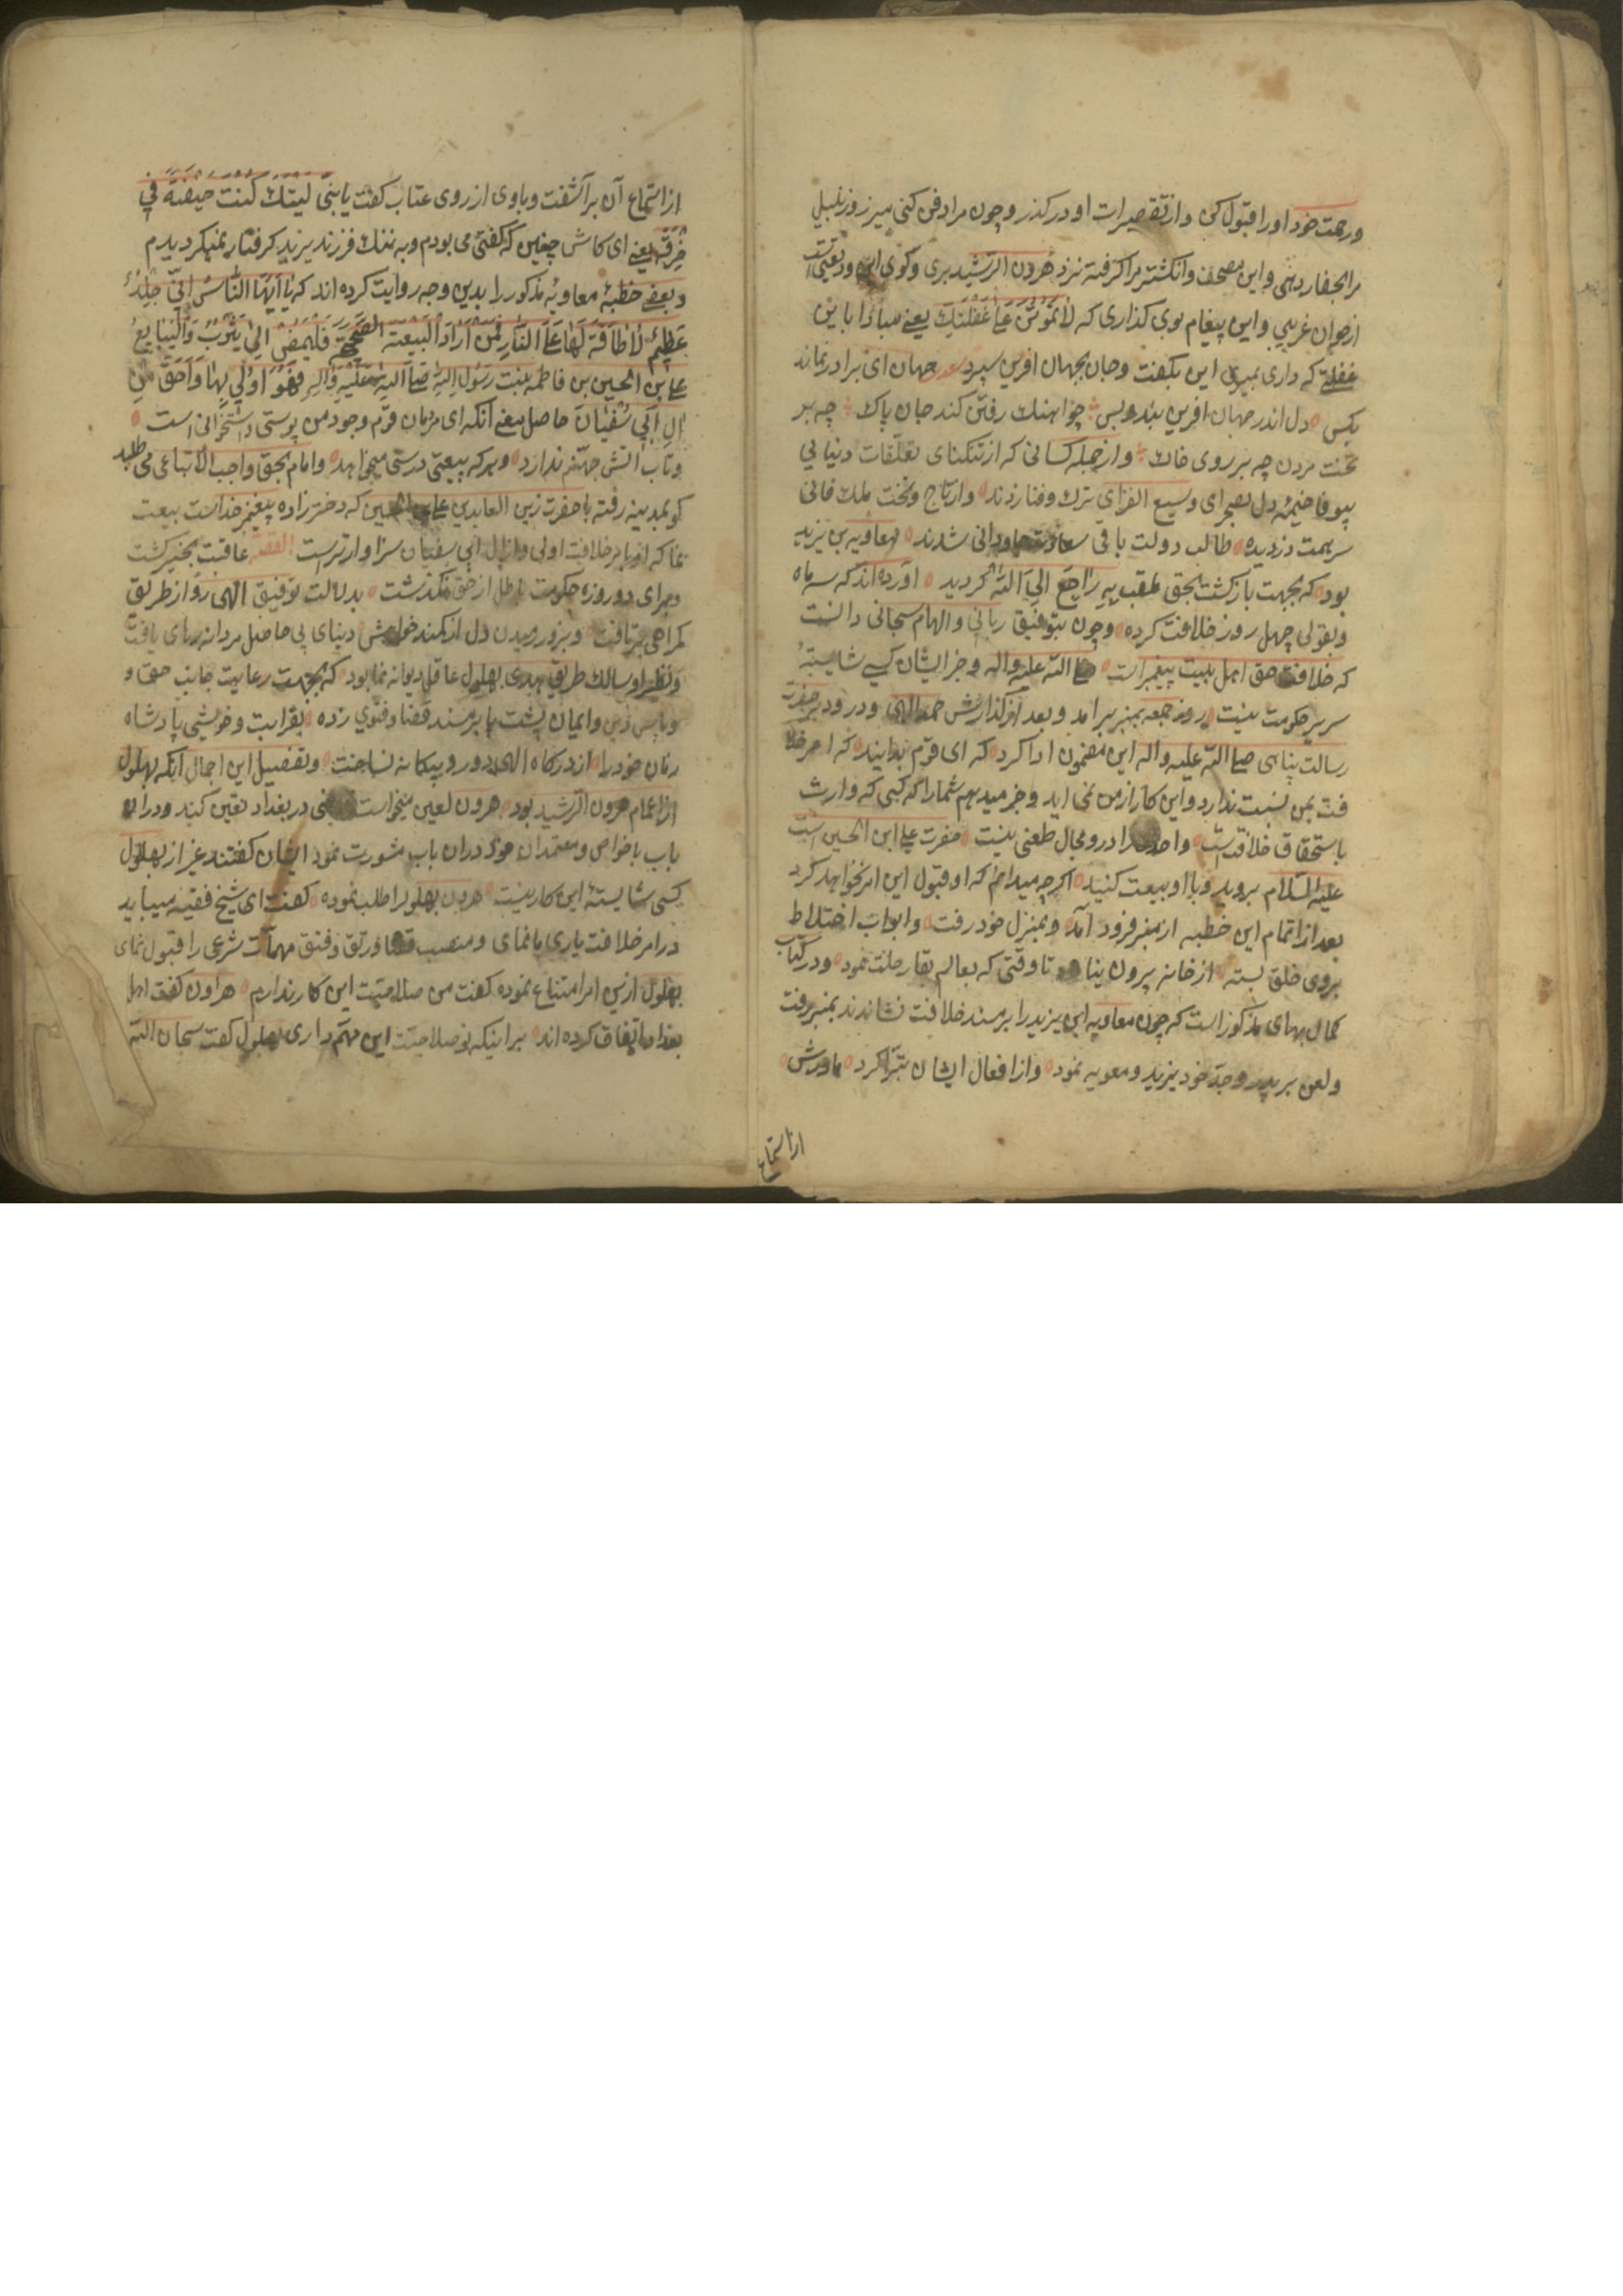 ورحمت خود اورا قبول کن وازتقصیرات او درکذر وچون مرا دفن کنی میرز وزنبیل
مرا بحفار دهی واین مصحف وانکشتر مرا کرفته نزد هرون الرشید بری وکوی این ودیعتیست
ازجوان غریبی واین پیغام بوی کذاری که لا تموتن علی غفلتک یعنی مبادا باین
غفلتی که داری بمیری این بکفت وجان بجهان افرین سپرد جهان ای برادر نماند
بکس دل اندر جهان افرین بند وبس چو اهنک رفتن کند جان پاک چه بر
تخت مردن چه بر روی خاک وازجمله کسانی که ازتنکنای تعلقات دنیای
بیوفا خیمهٔ دل بصحرای وسیع الفزای ترک وفنا زدند وازتاج وتخت ملک فانی
سر همت دزدیده طالب دولت باقی سعادت جاودانی شدند معاویه بن یزید
بود که بجهت بازکشت بحق ملقب به راجع الی الله کردید اورده اند که سه ماه
وبقولی چهل روز خلافت کرده وچون بتوفیق ربانی والهام سبحانی دانست
که خلافت حق اهل بیت پیغمبراست صلی الله علیه واله وجز ایشان کسی شایستهٔ
سریر حکومت نیست روز جمعه بمنبر برامد وبعد ازکذارش حمد الهی ودرود برحضرت
رسالت پناهی صلی الله علیه واله این مضمون ادا کرد که ای قوم بدانید که امر خلا
فت بمن نسبت ندارد واین کار ازمن نمی اید وخبر میدهم شمارا که کسی که وارث
باستحقاق خلافتست واحدی را درو مجال طعنی نیست حضرت علی ابن الحسین است
علیه السلام بروید وبا او بیعت کنید اکرچه میدانم که او قبول این امر نخواهد کرد
بعد ازاتمام این خطبه ازمنبر فرود آمد وبمنزل خود رفت وابواب اختلاط
بروی خلق بسته ازخانه بیرون نیامد تا وقتی که بعالم بقا رحلت نمود ودرکتاب
کمال بهای مذکوراست که چون معاویه ابن یزید را برمسند خلافت نشاندند بمنبر رفت
ولعن بر پدر وجد خود یزید ومعویه نمود وازافعال ایشان تبرا کرد مادرش
ازاستماع
ازاستماع آن برآشفت وباوی ازروی عتاب کفت یا بنی لیتک کنت حیضة فی
خرقة یعنی ای کاش چنین که کفتی می بودم وبه ننک فرزند یزید کرفتار نمیکردیدم
وبعضی خطبهٔ معاویهٔ مذکور را بدین وجه روایت کرده اند که یا ایها الناس انی جلد
عظیم لا طاقة لها علی النار فمن اراد البیعة الصحیحة فلیمض الی یثرب والیبایع
علی بن الحسین بن فاطمه بنت رسول الله صلی الله علیه واله فهو اولی بها واحق من
ال ابی سفیان حاصل معنی آنکه ای مردمان قوم وجود من پوستی واستخوانی است
وتاب آتش جهنم ندارد وهرکه بیعتی درستی میخواهد وامام بحق واجب الاتباعی می طلبد
کو بمدینه رفته با حضرت زین العابدین علی بن الحسین که دخترزاده پیغمبر خداست بیعت
نما که او بامر خلافت اولی واز ال ابی سفیان سزاوارتراست القصه عاقبت بخیر کشت
وبرای دو روزه حکومت باطل ازحق نکذشت بدلالت توفیق الهی رو از طریق
کمراهی برتافت وبزور بریدن دل ازکمند خواهش دنیای بی حاصل مردانه رهای یافت
ونظیر او سالک طریق هدی بهلول عاقل دیوانه نما بود که بجهت رعایت جانب حق و
وپاس دین وایمان پشت پا برمسند قضا وفتوی زده بقرابت وخویشی پادشاه
زمان خودرا ازدرکاه الهی دور وبیکانه نساخت وتفصیل این اجمال آنکه بهلول
ازاعمام هرون الرشید بود هرون لعین میخواست قاضی دربغداد تعین کند ودران
باب باخواص ومعتمدان خود دران باب مشورت نمود ایشان کفتند غیر ازبهلول
کسی شایستهٔ این کار نیست هرون بهلول را طلب نموده کفت ای شیخ فقیه میباید
درامر خلافت یاری ما نمای ومنصب قضا ورتق وفتق مهمات شرعی را قبول نمای
بهلول ازین امر امتناع نموده کفت من صلاحیت این کار ندارم هراون کفت اهل
بغداد اتفاق کرده اند براینکه تو صلاحیت این مهم داری بهلول کفت سبحان الله